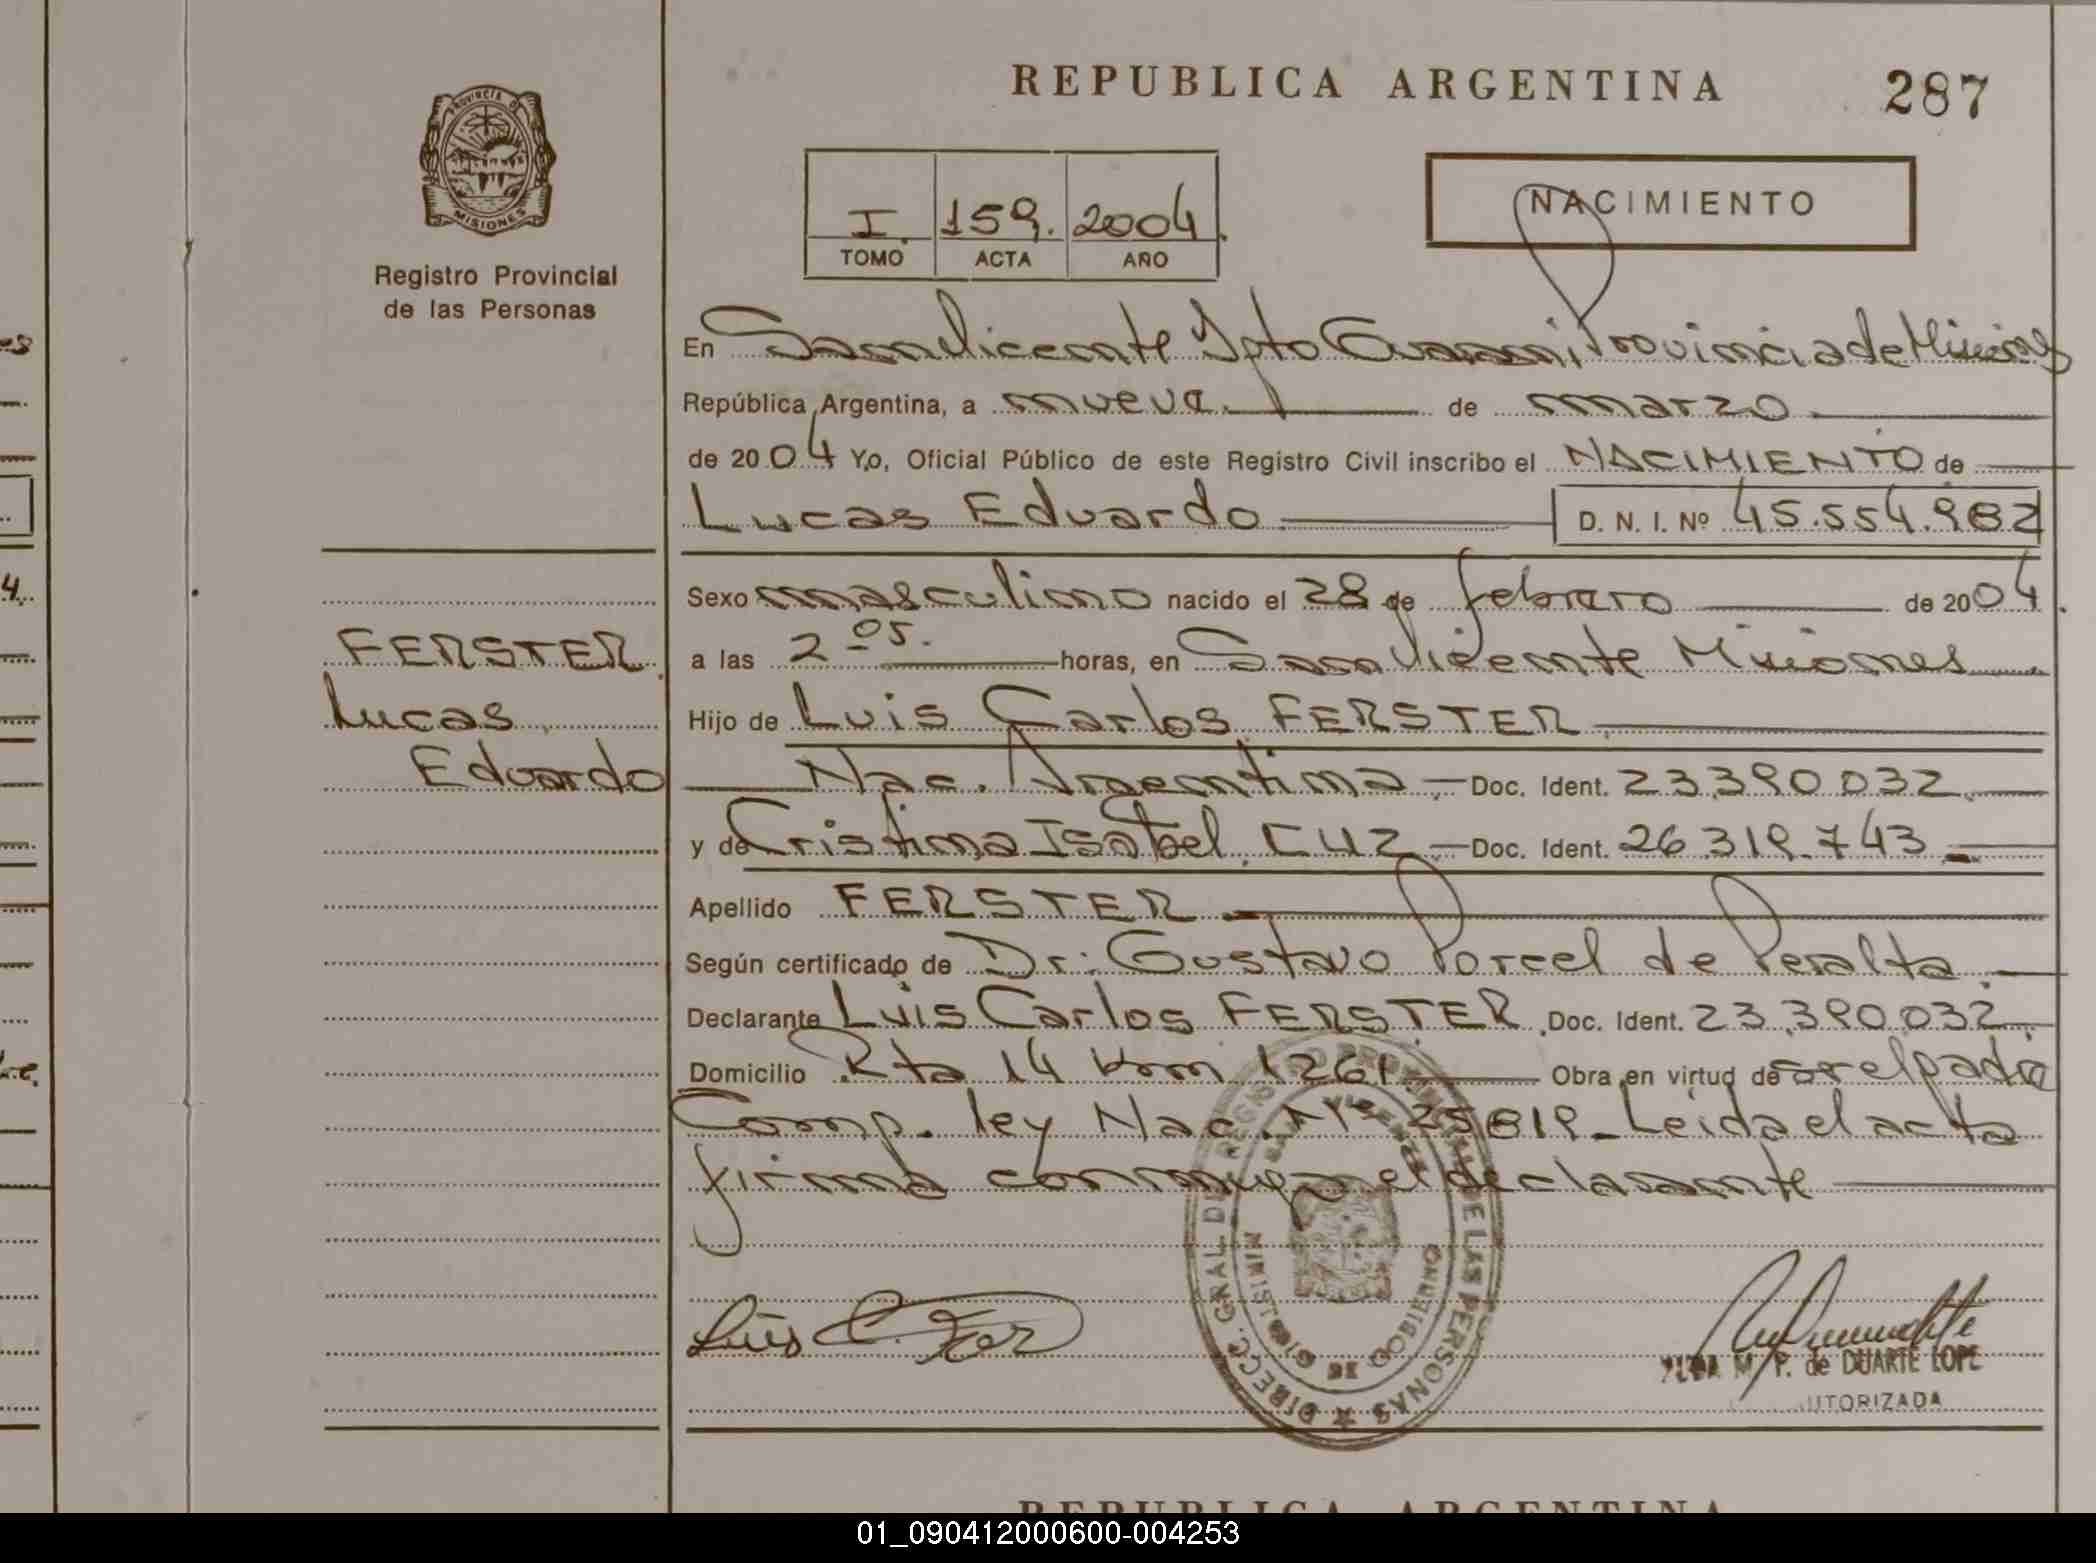 REPUBLICA ARGENTINA
287
PROVINCIA DE
MISIONES
Registro Provincial
de las Personas
I. 159. 2004.
TOMO ACTA AÑO
NACIMIENTO
En San Vicente Dpto Guaraní, Provincia de Misiones
República Argentina, a nueve de marzo
de 2004 Yo, Oficial Público de este Registro Civil inscribo el NACIMIENTO de
Lucas Eduardo D. N. I. Nº 45.554.982
Sexo masculino nacido el 28 de febrero de 2004.
a las 2 05. horas, en San Vicente Misiones
Hijo de Luis Carlos FERSTER
Nac. Argentina - Doc. Ident. 23.390.032.
y de Cristina Isabel CUZ - Doc. Ident. 26.319.743
Apellido FERSTER
Según certificado de Dr: Gustavo Porcel de Peralta.
Declarante Luis Carlos FERSTER Doc. Ident. 23.390.032
Domicilio Rta 14 Km 1261 Obra en virtud de ser el padre
Comp. ley Nac. Nº 25819 - Leida el acta
firma conmigo el declarante
FERSTER
Lucas
Eduardo
Luis C. Fer
DIRECC. GRAL. DE REGISTRO PROVINCIAL DE LAS PERSONAS
SAN VICENTE
MINISTERIO DE GOBIERNO
M. P. de DUARTE LOPE
UTORIZADA
REPUBLICA ARGENTINA
01_090412000600-004253